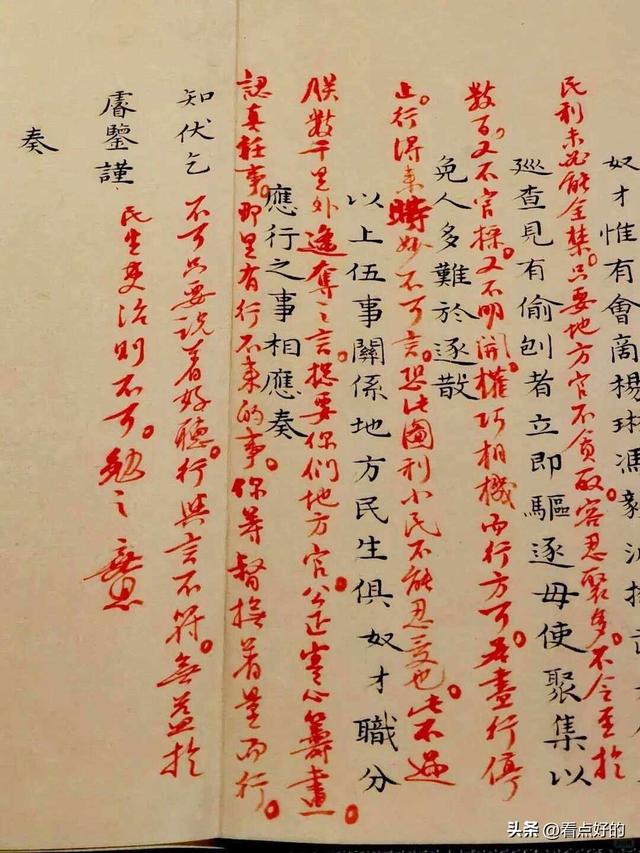 奴才惟有會商楊琳馮毅派撥
民利未必能全禁。只要地方官不貪取。容忍聚多。不令至於
巡查見有偷刨者立即驅逐毋使聚集以
數百。又不官採。又不明開。權巧相機而行方可。若盡行停
免人多難於逐散
止。行得來時妙不可言。恐此圖利小民不能忍受也。此不過
以上伍事關係地方民生俱奴才職分
朕數千里外逆奪之言。總要你們地方官。公正心籌畫。
應行之事相應奏
認真任事。那里有行不來的事。你等督撫著量而行。
知伏乞
不可只要說着好聽。行與言不符。無益於
睿鑒謹
民生吏治則不可。勉之
奏
头条 @看点好的